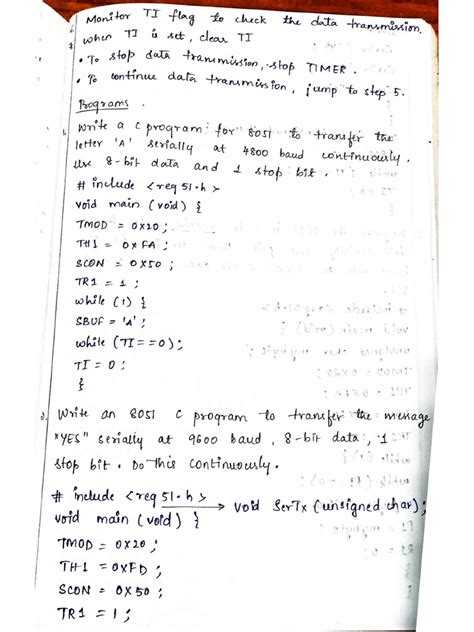 Monitor TI flag to check the data transmission.
when TI is set, clear TI
• To stop data transmission, stop TIMER.
• To continue data transmission, jump to step 5.
Programs.
1. Write a C program for 8051 to transfer the
letter 'A' serially at 4800 baud continuously.
Use 8-bit data and 1 stop bit.
# include <reg 51.h>
void main (void) {
TMOD = 0x20;
TH1 = 0xFA;
SCON = 0x50;
TR1 = 1;
while (1) {
SBUF = 'A';
while (TI==0);
TI = 0;
}
2. Write an 8051 C program to transfer the message
"YES" serially at 9600 baud, 8-bit data, 1
stop bit. Do this continuously.
# include <reg 51.h> → void SerTx (unsigned char);
void main (void) {
TMOD = 0x20;
TH1 = 0xFD;
SCON = 0x50;
TR1 = 1;